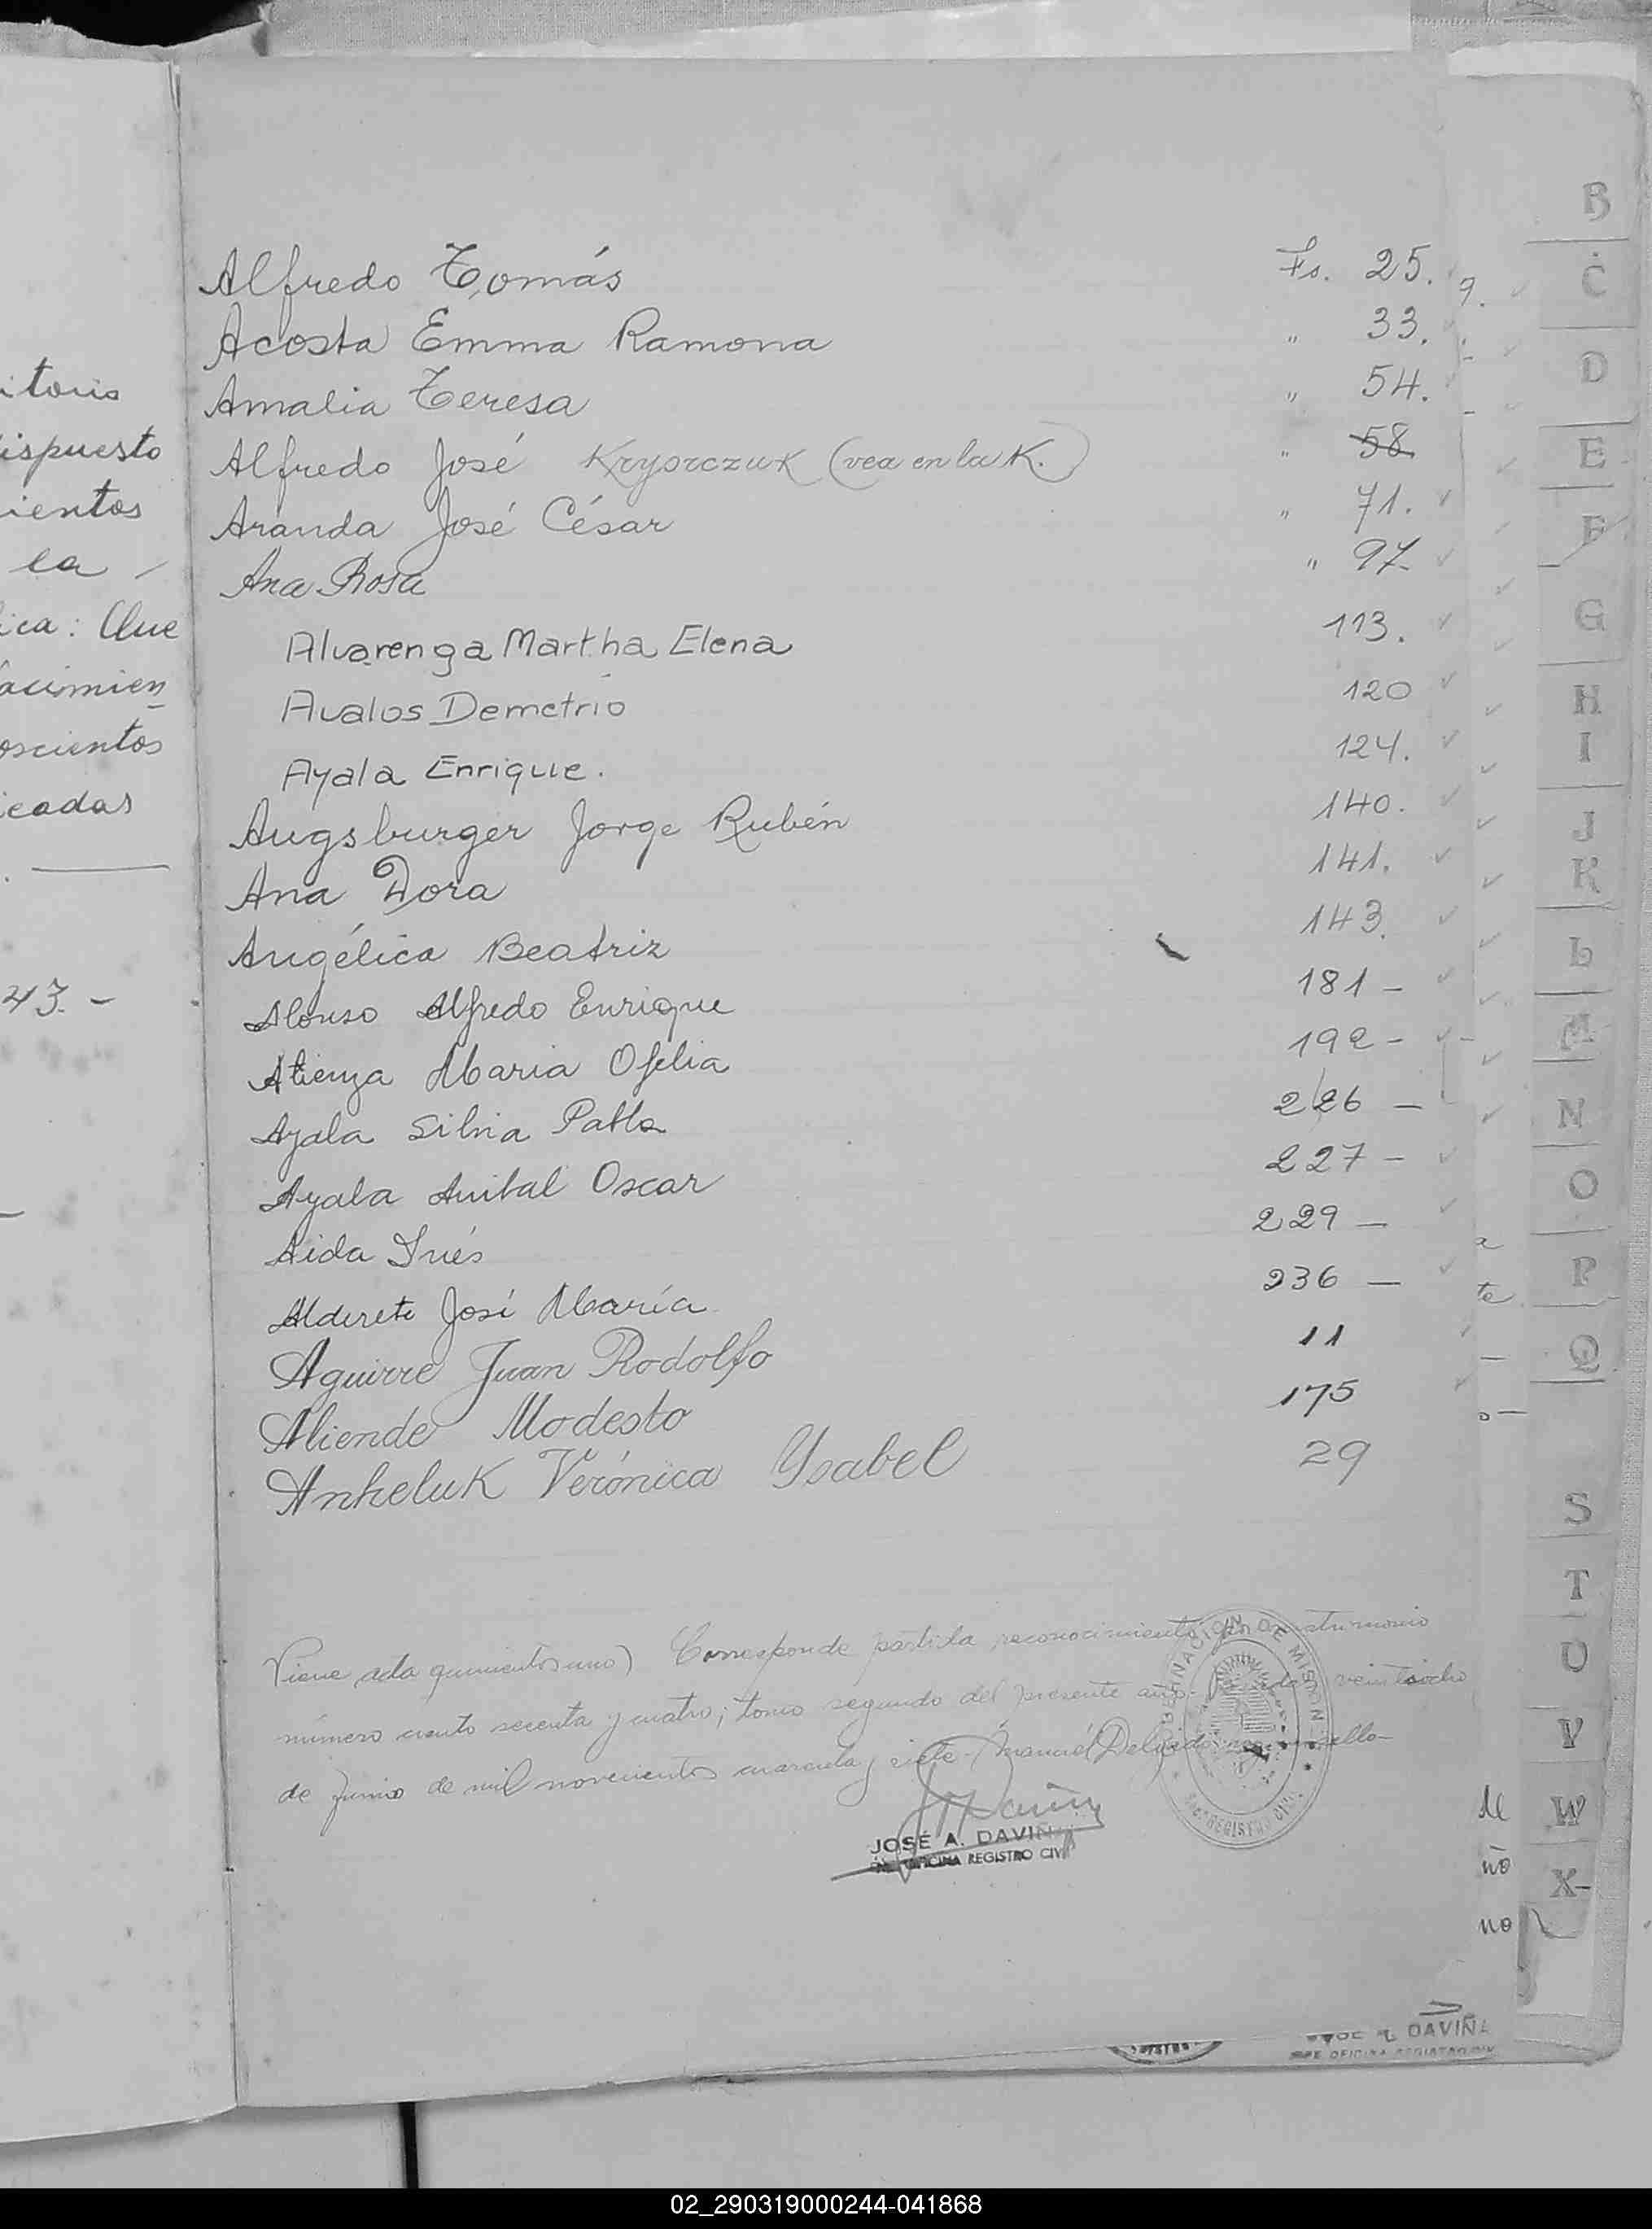 Alfredo Tomás Fs. 25.
Acosta Emma Ramona " 33.
Amalia Teresa " 54.
Alfredo José Kryorczuk (vea en la K.) " 58
Aranda José César " 71.
Ana Rosa " 97
Alvarenga Martha Elena 113.
Avalos Demetrio 120
Ayala Enrique. 124.
Augsburger Jorge Rubén 140.
Ana Dora 141.
Angélica Beatriz 143.
Alonso Alfredo Enrique 181 -
Atienza Maria Ofelia 192 -
Ayala Silvia Pabla 226 -
Ayala Anibal Oscar 227 -
Aida Inés 229 -
Alderete José María 236 -
Aguirre Juan Rodolfo 11
Aliende Modesto 175
Anheluk Verónica Ysabel 29
Viene acta quinientos uno) Corresponde partida reconocimiento matrimonio
número ciento sesenta y cuatro; tomo segundo del presente año. veintiocho
de junio de mil novecientos cuarenta y siete - Manuel Delgado
JOSÉ A. DAVIÑA
OFICINA REGISTRO CIVIL
GOBERNACION DE MISIONES
REGISTRO CIVIL
itorio
ispuesto
ientos
la
ica: Que
acimien
oscientos
icadas
43. -
B
C
D
E
F
G
H
I
J
K
L
M
N
O
P
Q
S
T
U
V
W
X-
te
ño
no
DAVIÑA
OFICINA REGISTRO CIVIL
02_290319000244-041868